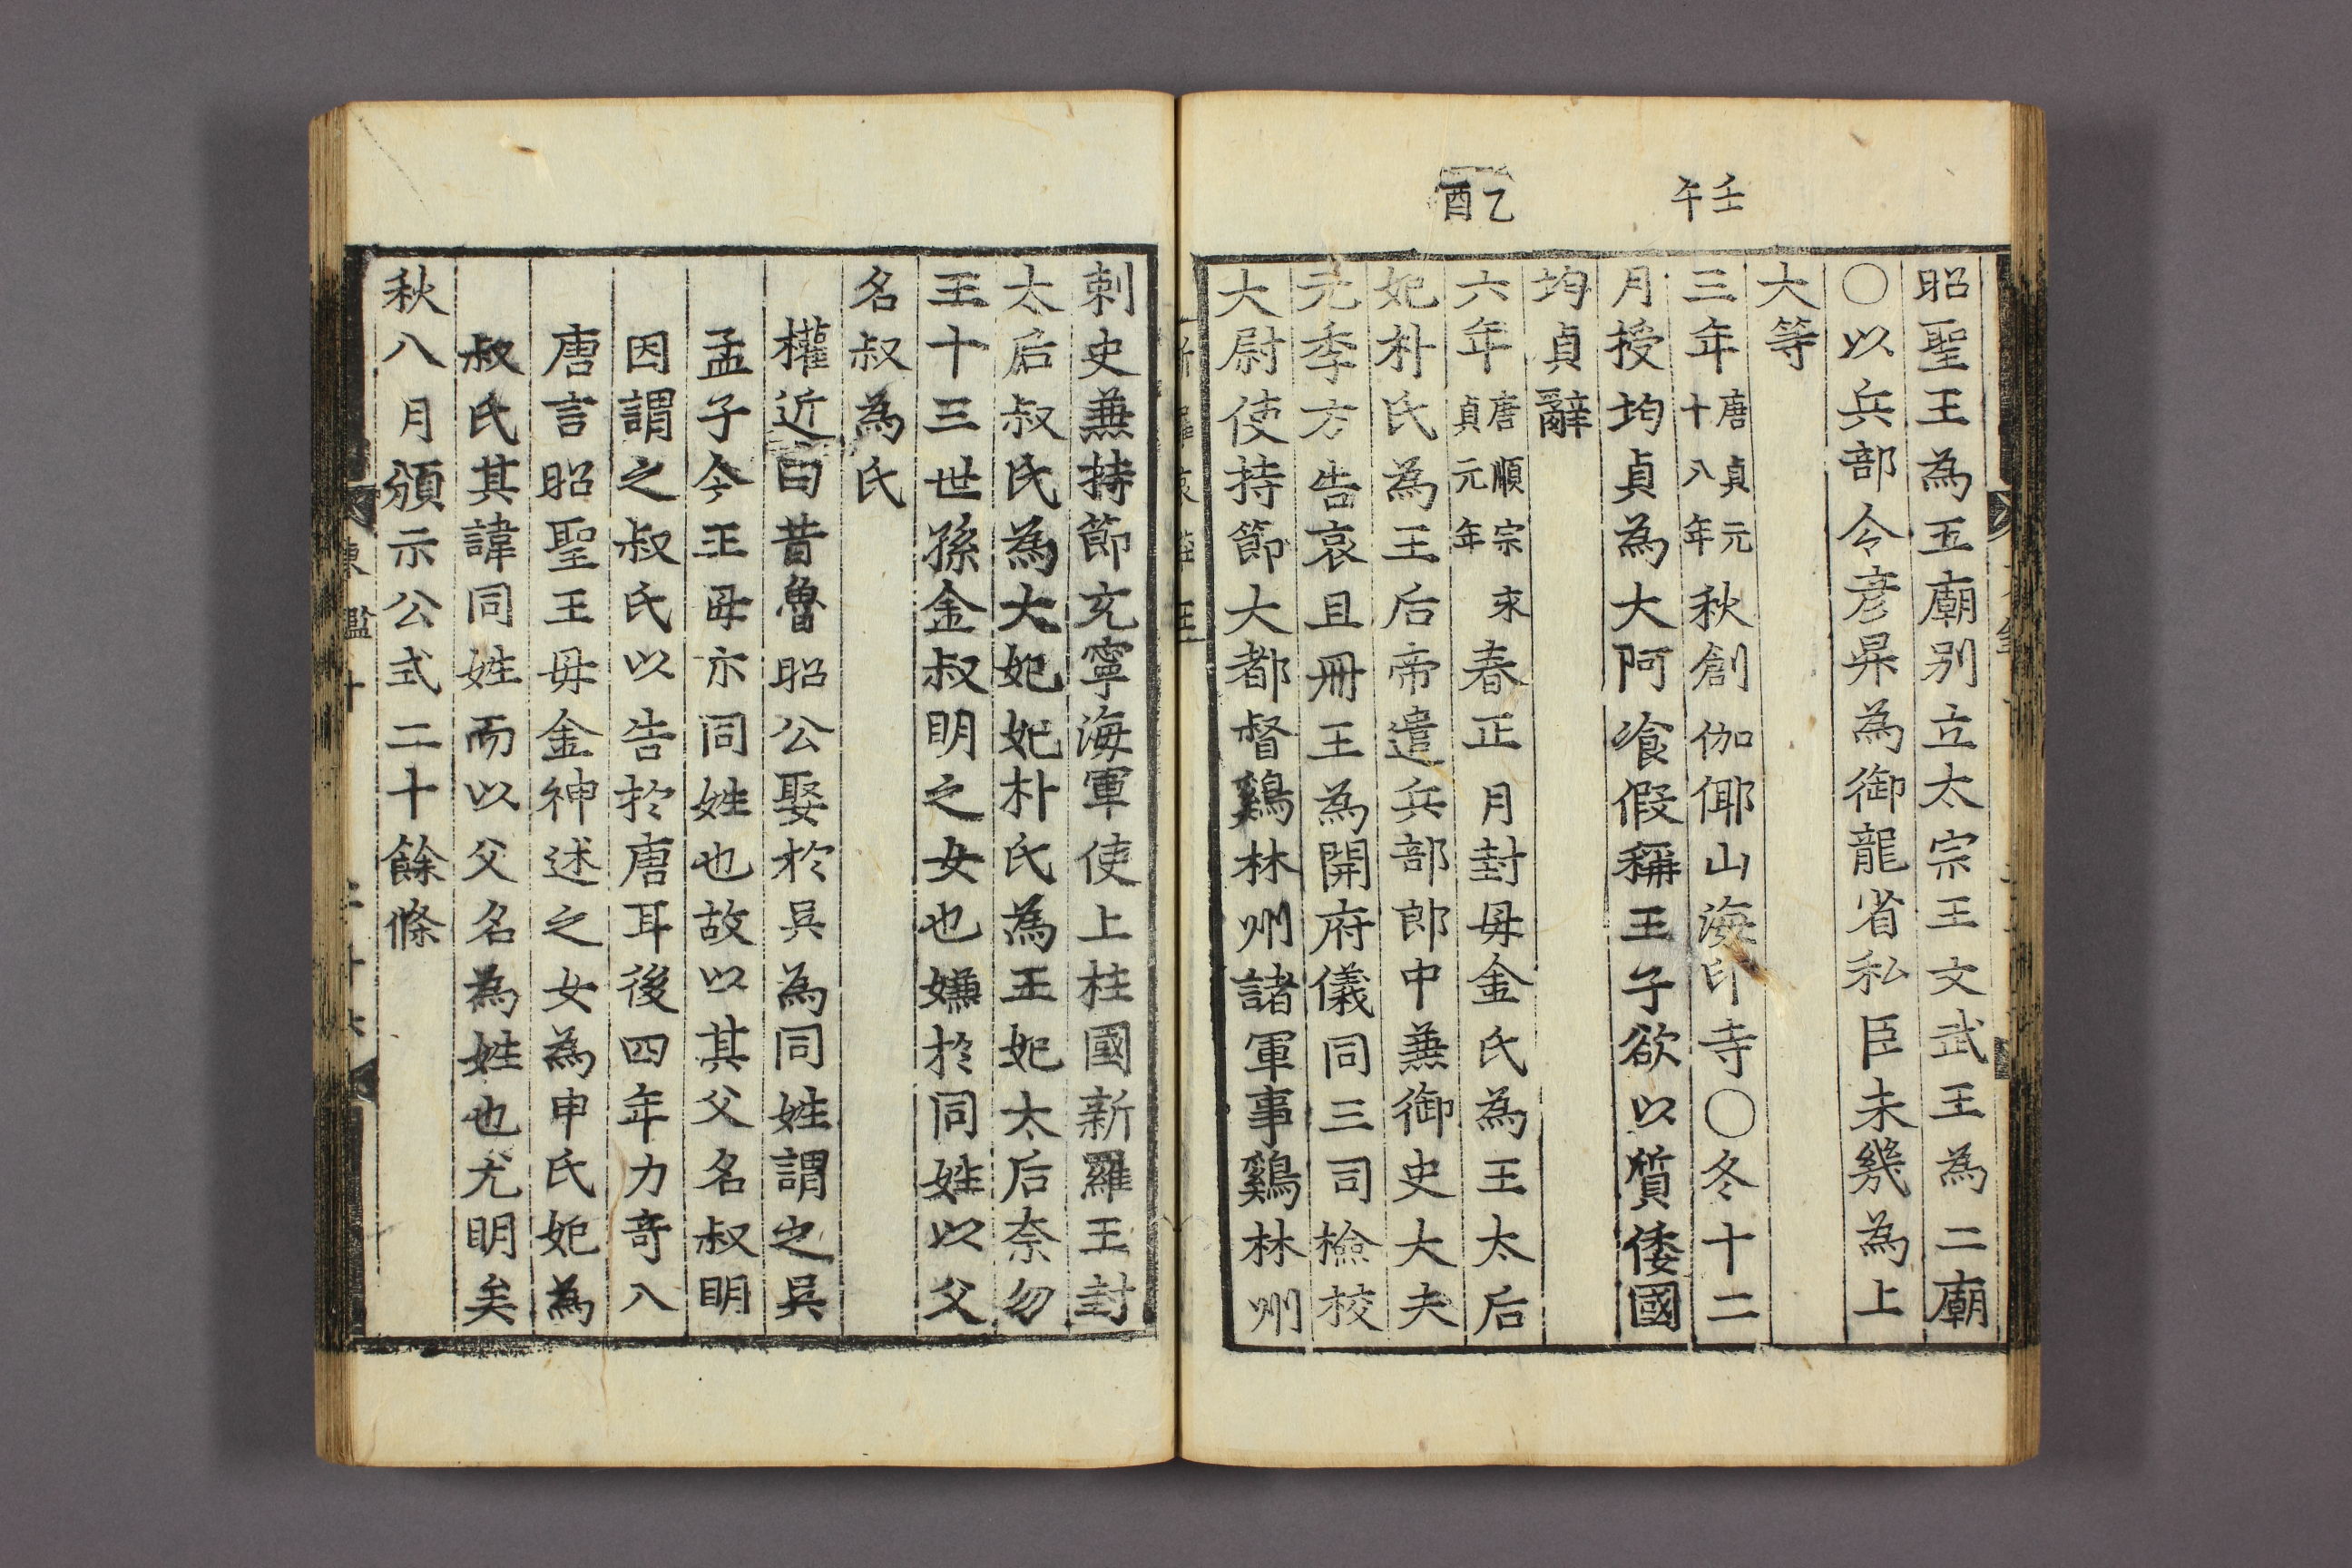 壬午
乙酉
昭聖王為五廟别立太宗王文武王為二廟
○以兵部令彦昇為御龍省私臣未幾為上
大等
三年唐貞元十八年秋創伽倻山海印寺○冬十二
月授均貞為大阿飡假稱王子欲以質倭國
均貞辭
六年唐順宗永貞元年春正月封母金氏為王太后
妃朴氏為王后帝遣兵部郎中兼御史大夫
元季方告哀且冊王為開府儀同三司檢校
大尉使持節大都督鷄林州諸軍事鷄林州
刺史兼持節充寧海軍使上柱國新羅王封
太后叔氏為大妃妃朴氏為王妃太后奈勿
王十三世孫金叔明之女也嫌於同姓以父
名叔為氏
權近曰昔魯昭公娶於吳為同姓謂之吳
孟子今王母亦同姓也故以其父名叔明
因謂之叔氏以告於唐耳後四年力奇八
唐言昭聖王母金神述之女為申氏妃為
叔氏其諱同姓而以父名為姓也尤明矣
秋八月頒示公式二十餘條